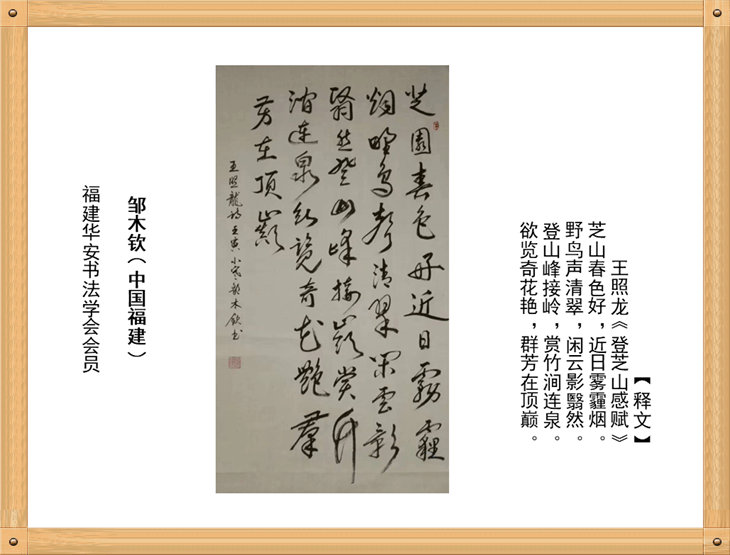 【释文】
王照龙《登芝山感赋》
芝山春色好，近日雾霾烟。
野鸟声清翠，闲云影翳然。
登山峰接岭，赏竹涧连泉。
欲览奇花艳，群芳在顶巅。
芝園春色好近日霧霾
烟野鸟聲清翠闲雲影
翳然登山峰接嶺赏竹
涧连泉欲览奇花艳羣
芳在顶巅
王照龍诗壬寅小寒邹木钦书
邹木钦（中国福建）
福建华安书法学会会员